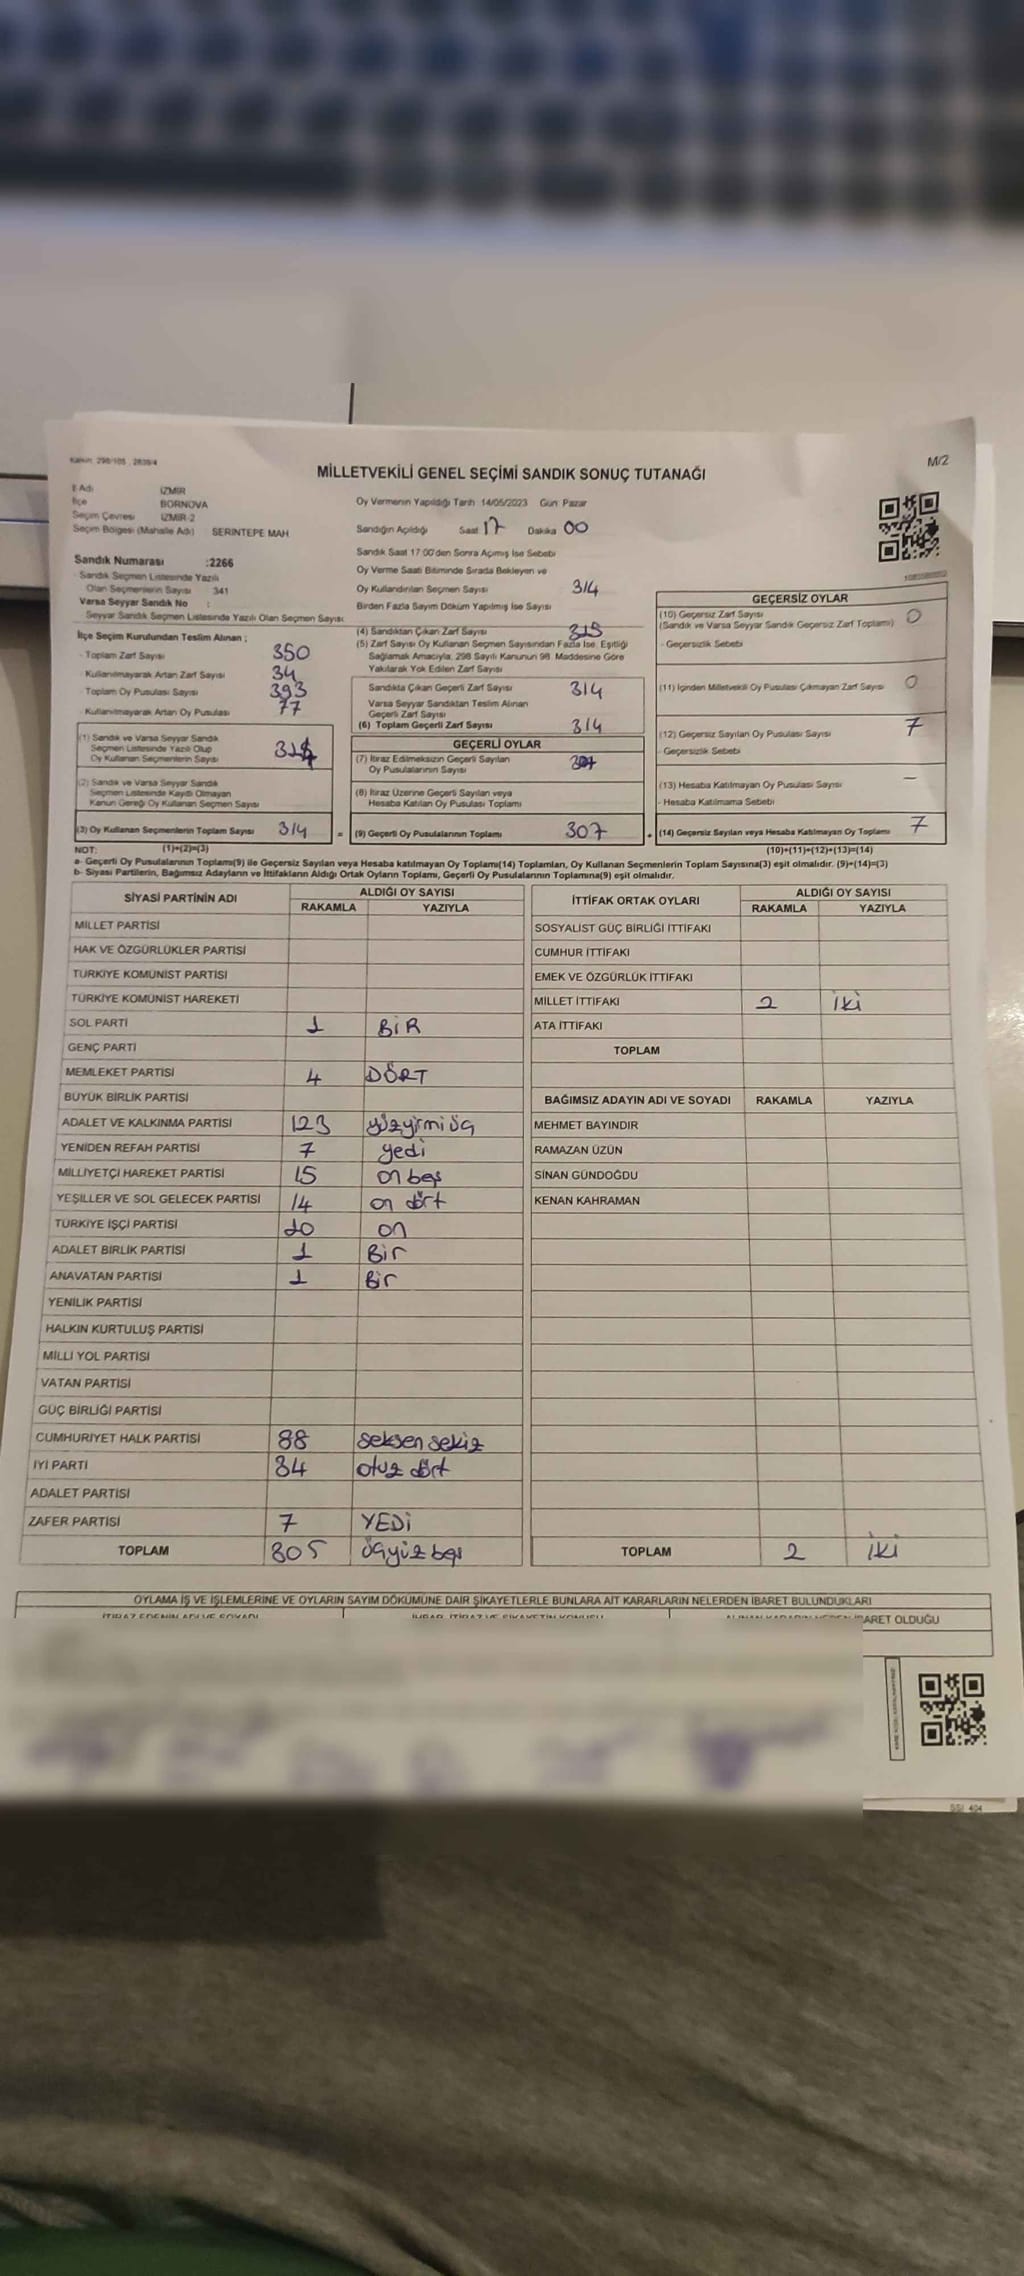 Kanun: 298/105 , 2839/4
MİLLETVEKİLİ GENEL SEÇİMİ SANDIK SONUÇ TUTANAĞI
M/2
İl Adı İZMİR
İlçe BORNOVA
Seçim Çevresi İZMİR-2
Seçim Bölgesi (Mahalle Adı) SERİNTEPE MAH
Oy Vermenin Yapıldığı Tarih 14/05/2023 Gün: Pazar
Sandığın Açıldığı Saat 17 Dakika 00
Sandık Saat 17:00'den Sonra Açımış İse Sebebi
Oy Verme Saati Bitiminde Sırada Bekleyen ve
Oy Kullandırılan Seçmen Sayısı 314
Birden Fazla Sayım Döküm Yapılmış İse Sayısı
Sandık Numarası :2266
- Sandık Seçmen Listesinde Yazılı
Olan Seçmenlerin Sayısı 341
Varsa Seyyar Sandık No :
Seyyar Sandık Seçmen Listesinde Yazılı Olan Seçmen Sayısı:
İlçe Seçim Kurulundan Teslim Alınan ;
- Toplam Zarf Sayısı 350
- Kullanılmayarak Artan Zarf Sayısı 34
- Toplam Oy Pusulası Sayısı 393
- Kullanılmayarak Artan Oy Pusulası 77
(1) Sandık ve Varsa Seyyar Sandık
Seçmen Listesinde Yazılı Olup
Oy Kullanan Seçmenlerin Sayısı
(2) Sandık ve Varsa Seyyar Sandık
Seçmen Listesinde Kayıtlı Olmayan
Kanun Gereği Oy Kullanan Seçmen Sayısı
(3) Oy Kullanan Seçmenlerin Toplam Sayısı 314 =
(4) Sandıktan Çıkan Zarf Sayısı
(5) Zarf Sayısı Oy Kullanan Seçmen Sayısından Fazla İse, Eşitliği
Sağlamak Amacıyla, 298 Sayılı Kanunun 98. Maddesine Göre
Yakılarak Yok Edilen Zarf Sayısı
Sandıkta Çıkan Geçerli Zarf Sayısı 314
Varsa Seyyar Sandıktan Teslim Alınan
Geçerli Zarf Sayısı
(6) Toplam Geçerli Zarf Sayısı 314
GEÇERLİ OYLAR
(7) İtiraz Edilmeksizin Geçerli Sayılan
Oy Pusulalarının Sayısı 307
(8) İtiraz Üzerine Geçerli Sayılan veya
Hesaba Katılan Oy Pusulası Toplamı
(9) Geçerli Oy Pusulalarının Toplamı 307 +
GEÇERSİZ OYLAR
(10) Geçersiz Zarf Sayısı 0
(Sandık ve Varsa Seyyar Sandık Geçersiz Zarf Toplamı)
- Geçersizlik Sebebi
(11) İçinden Milletvekili Oy Pusulası Çıkmayan Zarf Sayısı 0
(12) Geçersiz Sayılan Oy Pusulası Sayısı 7
- Geçersizlik Sebebi
(13) Hesaba Katılmayan Oy Pusulası Sayısı —
- Hesaba Katılmama Sebebi
(14) Geçersiz Sayılan veya Hesaba Katılmayan Oy Toplamı 7
NOT: (1)+(2)=(3) (10)+(11)+(12)+(13)=(14)
a- Geçerli Oy Pusulalarının Toplamı(9) ile Geçersiz Sayılan veya Hesaba katılmayan Oy Toplamı(14) Toplamları, Oy Kullanan Seçmenlerin Toplam Sayısına(3) eşit olmalıdır. (9)+(14)=(3)
b- Siyasi Partilerin, Bağımsız Adayların ve İttifakların Aldığı Ortak Oyların Toplamı, Geçerli Oy Pusulalarının Toplamına(9) eşit olmalıdır.
SİYASİ PARTİNİN ADI ALDIĞI OY SAYISI
RAKAMLA YAZIYLA
MİLLET PARTİSİ
HAK VE ÖZGÜRLÜKLER PARTİSİ
TÜRKİYE KOMÜNİST PARTİSİ
TÜRKİYE KOMÜNİST HAREKETİ
SOL PARTİ 1 BİR
GENÇ PARTİ
MEMLEKET PARTİSİ 4 DÖRT
BÜYÜK BİRLİK PARTİSİ
ADALET VE KALKINMA PARTİSİ 123 yüzyirmi üç
YENİDEN REFAH PARTİSİ 7 yedi
MİLLİYETÇİ HAREKET PARTİSİ 15 on beş
YEŞİLLER VE SOL GELECEK PARTİSİ 14 on dört
TÜRKİYE İŞÇİ PARTİSİ 10 on
ADALET BİRLİK PARTİSİ 1 Bir
ANAVATAN PARTİSİ 1 Bir
YENİLİK PARTİSİ
HALKIN KURTULUŞ PARTİSİ
MİLLİ YOL PARTİSİ
VATAN PARTİSİ
GÜÇ BİRLİĞİ PARTİSİ
CUMHURİYET HALK PARTİSİ 88 seksen sekiz
İYİ PARTİ 34 otuz dört
ADALET PARTİSİ
ZAFER PARTİSİ 7 YEDİ
TOPLAM 305 üçyüz beş
İTTİFAK ORTAK OYLARI ALDIĞI OY SAYISI
RAKAMLA YAZIYLA
SOSYALİST GÜÇ BİRLİĞİ İTTİFAKI
CUMHUR İTTİFAKI
EMEK VE ÖZGÜRLÜK İTTİFAKI
MİLLET İTTİFAKI 2 iki
ATA İTTİFAKI
TOPLAM
BAĞIMSIZ ADAYIN ADI VE SOYADI RAKAMLA YAZIYLA
MEHMET BAYINDIR
RAMAZAN ÜZÜN
SİNAN GÜNDOĞDU
KENAN KAHRAMAN
TOPLAM 2 iki
OYLAMA İŞ VE İŞLEMLERİNE VE OYLARIN SAYIM DÖKÜMÜNE DAİR ŞİKAYETLERLE BUNLARA AİT KARARLARIN NELERDEN İBARET BULUNDUKLARI
İTİRAZ EDENİN ADI VE SOYADI İHBAR, İTİRAZ VE ŞİKAYETİN KONUSU ALINAN KARARIN NEDEN İBARET OLDUĞU
SSI 404